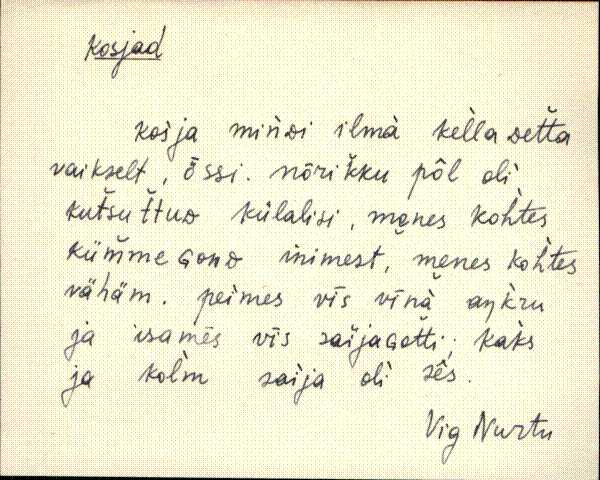 kosjad
kos̀ja miǹᴅi ilmà kèllaᴅet̆ta
vaikselt, ȫssi. nōrik̆ku pôl olì
kut̆sut̆tuᴅ külalisi, mǝnes koh̀tes
küm̆meɢonᴅ inimest, mǝnes koh̀tes
vähä̀m. peìmes vīs vīnà aŋkru
ja isamēs vīs saìjaɢot̆ti; kaks
ja kolm̀ saìja olì sês.
Vig Nurtu